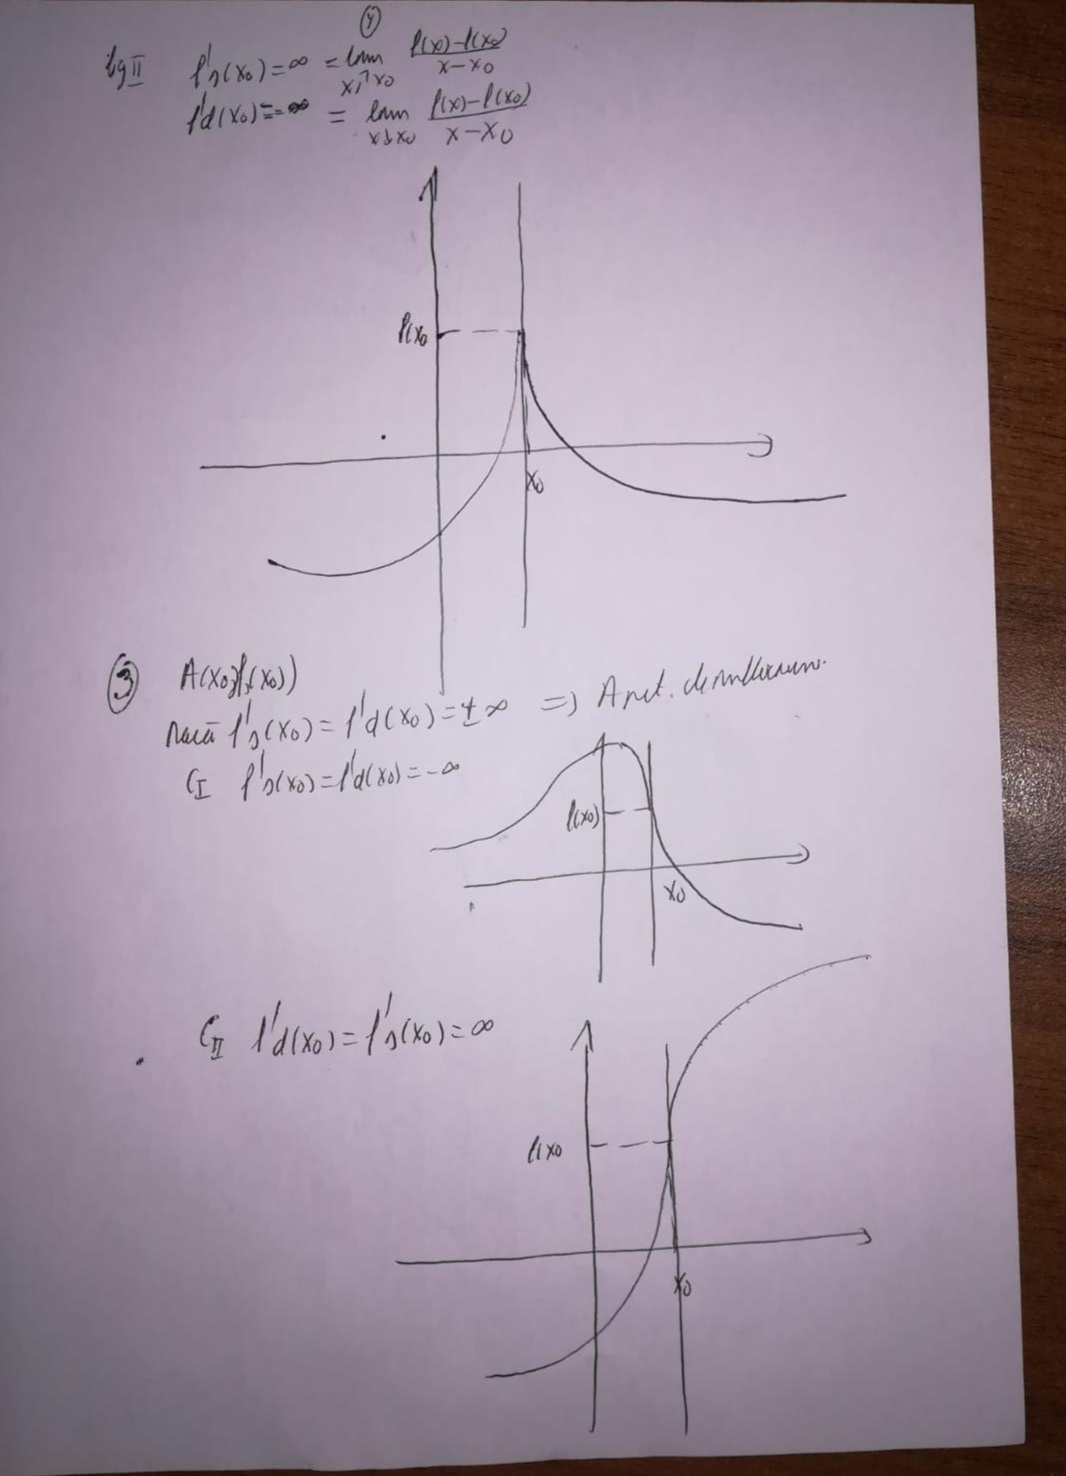 ④
Cg II f's(x₀)=∞ = lim x↗x₀ (f(x)-f(x₀))/(x-x₀)
f'd(x₀)=-∞ = lim x↘x₀ (f(x)-f(x₀))/(x-x₀)
f(x₀
x₀
③ A(x₀,f(x₀))
Dacă f's(x₀)=f'd(x₀)=±∞ ⇒ A pct. de inflexiune.
C I f's(x₀)=f'd(x₀)=-∞
f(x₀)
x₀
C II f'd(x₀)=f's(x₀)=∞
f(x₀
x₀